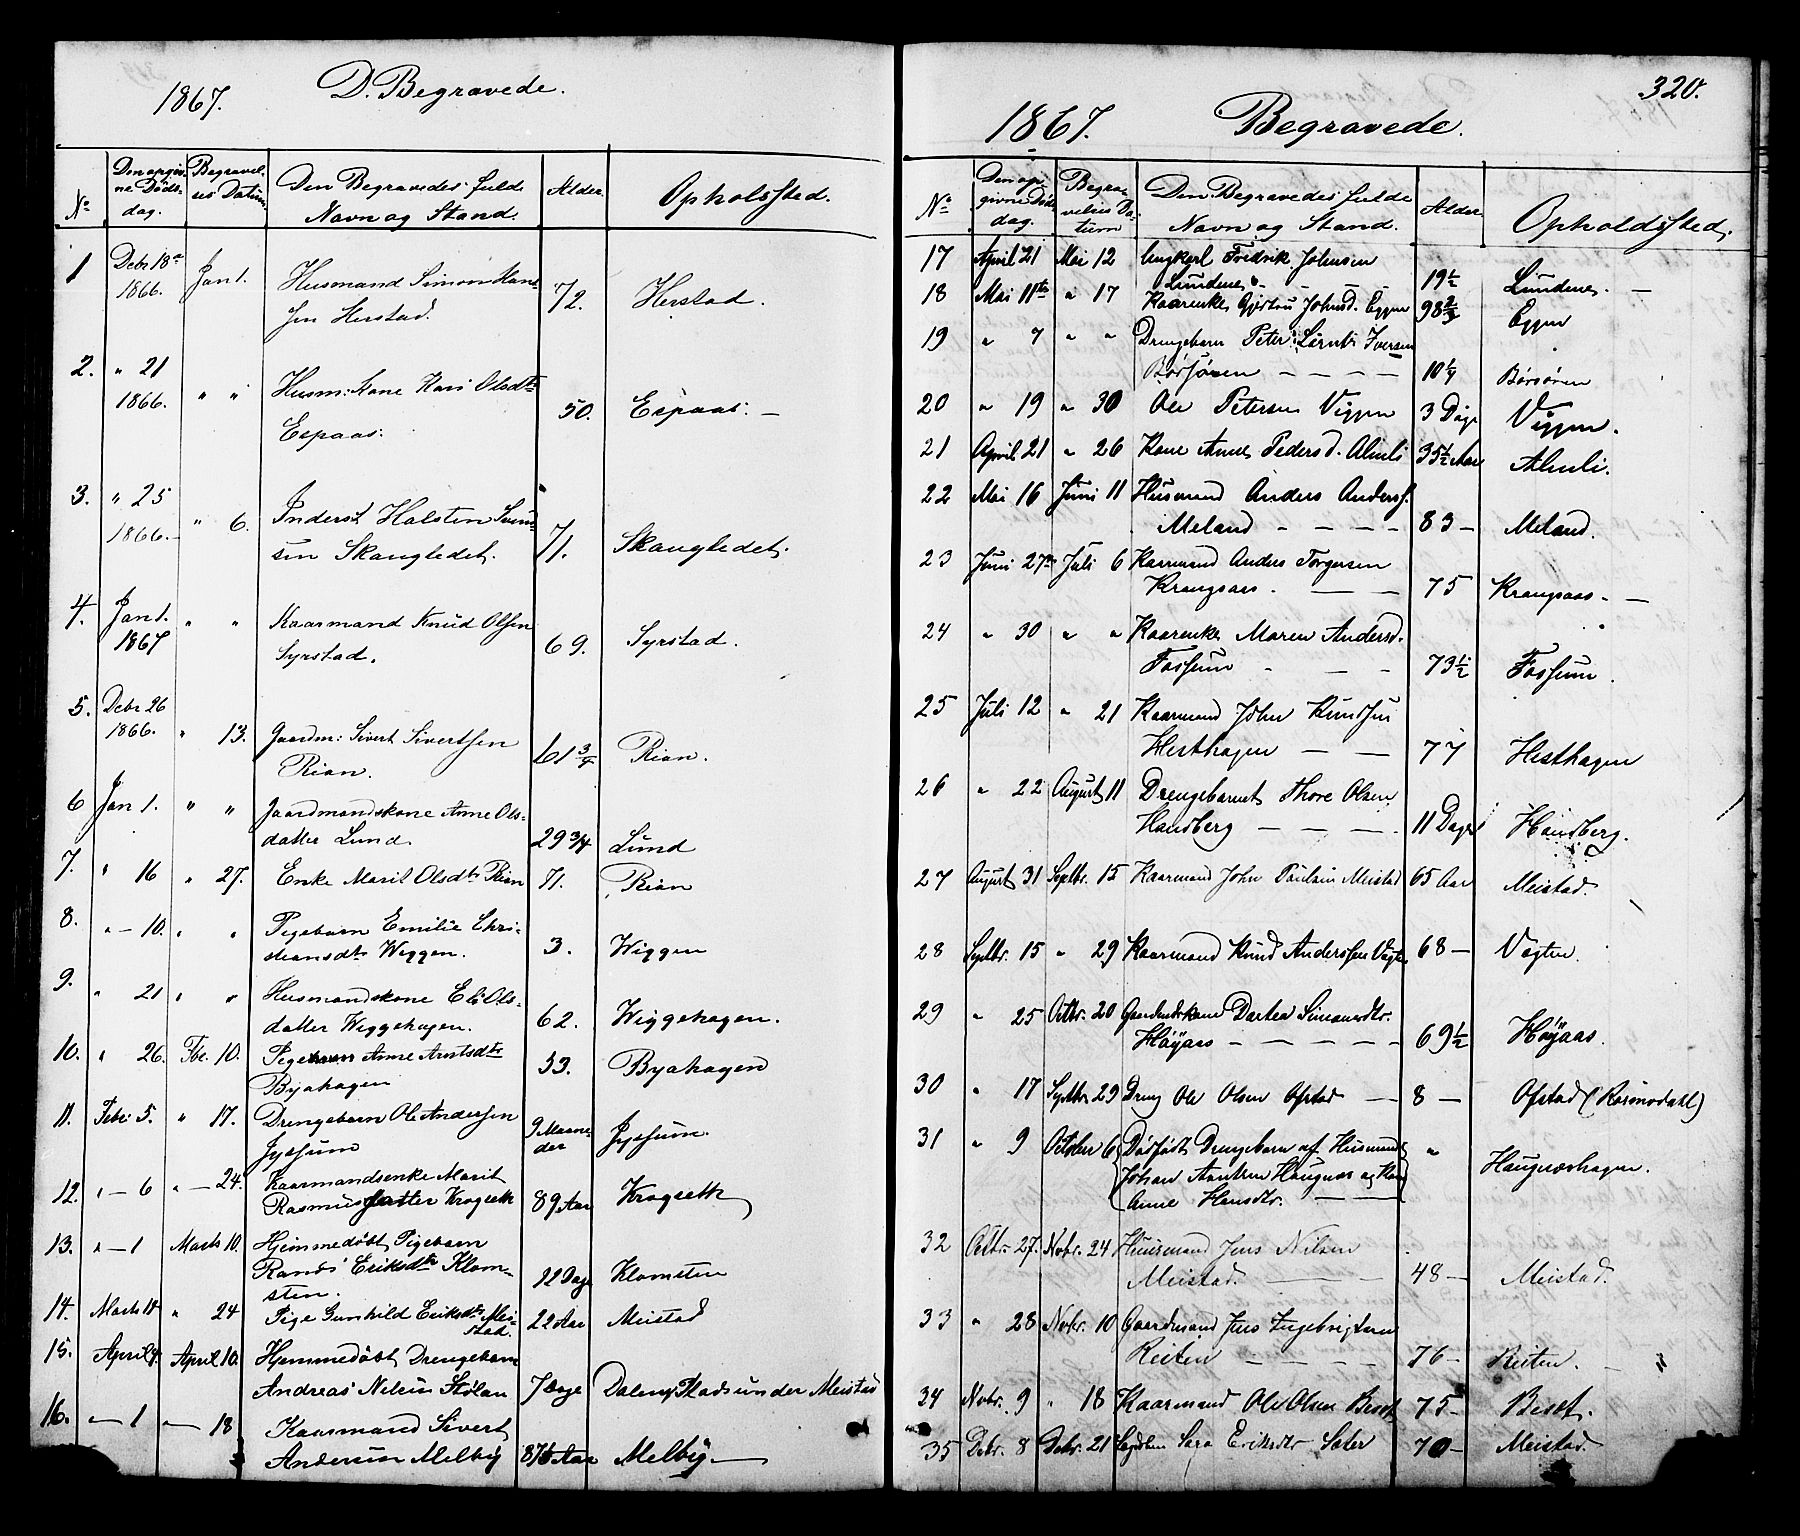 1867. D. Begravede.
No Den opgiv- ne Döds- dag. Begravel- ses Datum. Den Begravedes fulde Navn og Stand. Alder. Opholssted.
1 Debr 18de 1866. Jan 1. Husmand Simon Han-
sen Herstad. 72. Herstad.
2. " 21 1866. " " Husm: Kone Kari Olsdtr
Espaas. 50. Espaas. —
3. " 25 1866. " 6. Inderst Halsten Svend-
sen Skangledet. 71. Skangledet.
4. Jan 1. 1867 " " Kaarmand Knud Olsen
Syrstad. 69. Syrstad.
5. Debr 26 1866. " 13. Gaardm: Sivert Sivertsen
Rian. 61 3/4 Rian.
6 Jan 1. " " Gaardmandskone Anne Ols-
datter Lund 29 3/4 Lund
7. " 16 " 27. Enke Marit Olsdtr Rian 71. Rian
8. " — 10. " " Pigebarn Emilie Chri-
stiansdtr Wiggen. 3. Wiggen
9. " 21 " " Husmandskone Eli Ols-
datter Wiggehagen. 62. Wiggehagen.
10. " 26. Fbr. 10. Pigebarn Anne Arntsdtr
Byahagen 33. Byahagen
11. Febr 5. " 17. Drengebarn Ole Andersen
Jyssum 9 Maane-
der Jyssum.
12. " — 6 " — 24. Kaarmandsenke Marit
Rasmusdatter Krogseth 89 Aar Krogseth
13. " — 1 Marts 10. Hjemmedöbt Pigebarn
Randi Eriksdtr Klom-
sten. 22 Dage Klomsten
14. Marts 14 " 24 Pige Gunhild Eriksdtr Mei-
stad. 22 Aar Meistad
15. April 4. April 10. Hjemmedöbt Drengebarn
Andreas Nelsen Stölan 7 Dage Dalen, Plads under Meistad
16. " — 1 " — 18 Kaarmand Sivert
Andersen Melby Aar Melby —
320.
1867. Begravede.
No Den op- givne Döds- dag. Begra- velses Da- tum Den Begravedes fulde Navn og Stand. Alder Opholdssted.
17 April 21 Mai 12 Ungkarl Fredrik Johnsen
Lundenes — — 19 1/2 Lundenes. —
18 Mai 11te " 17 Kaarenke Gjertru Johnsd. Eggen 98 2/3 Eggen
19 " 7 " " Drengebarn Peter Bernt Iversen
Börsören — — — — 10 1/4 Börsören
20 " 19 " 30 Ole Petersen Viggen 3 Dage Viggen.
21 April 21 " 26 Kone Anne Pedersd. Almli 35 1/2 Aar Almli.
22 Mai 16 Juni 11 Husmand Anders Anders.
Meland — — — — 83 — Meland.
23 Juni 27de Juli 6 Kaarmand Anders Torgersen
Krangsaas. — — 75 Krangsaas. —
24 " 30 " " Kaarenke Maren Andersd.
Fossum — — — 73 1/2 Fossum.
25 Juli 12 " 21 Kaarmand John Knudsen
Hesthagen — — 77 Hesthagen
26 " 22 August 11 Drengebarnet Thore Olsen
Handberg — — — — 11 Dage Handberg.
27 August 31 Septbr. 15 Kaarmand John Paulsen Meistad 65 Aar Meistad.
28 Septbr. 15 " 29 Kaarmand Knud Anderssen Vogten 68 — Vogten.
29 " 25 Octbr. 20 Gaardmdskone Dortea Simonsdtr.
Höÿaas — — — — — 69 1/2 Höÿaas.
30 " 17 Septbr 29 Dreng Ole Olsen Ofstad — 8 — Ofstad (Rosmodahl)
31 " 9 October 6 Dödfödt Drengebarn af Husmand
Johan Arntsen Haugnæs og Kone
Anne Hansdtr. — — " Haugnæshagen.
32 Octbr. 27. Novbr. 24 Huusmand Jens Nilsen
Meistad. — — 48 — Meistad.
33 " 28 Novbr. 10 Gaardmand Jens Ingebrigtsen
Reiten — — — — 76 — Reiten. —
34 Novbr. 9 " 18 Kaarmand Ole Olsen Beset 75 — Beset.
35 Debr. 8 Debr. 21 Sara Eriksdtr Sæter 70 — Meistad.